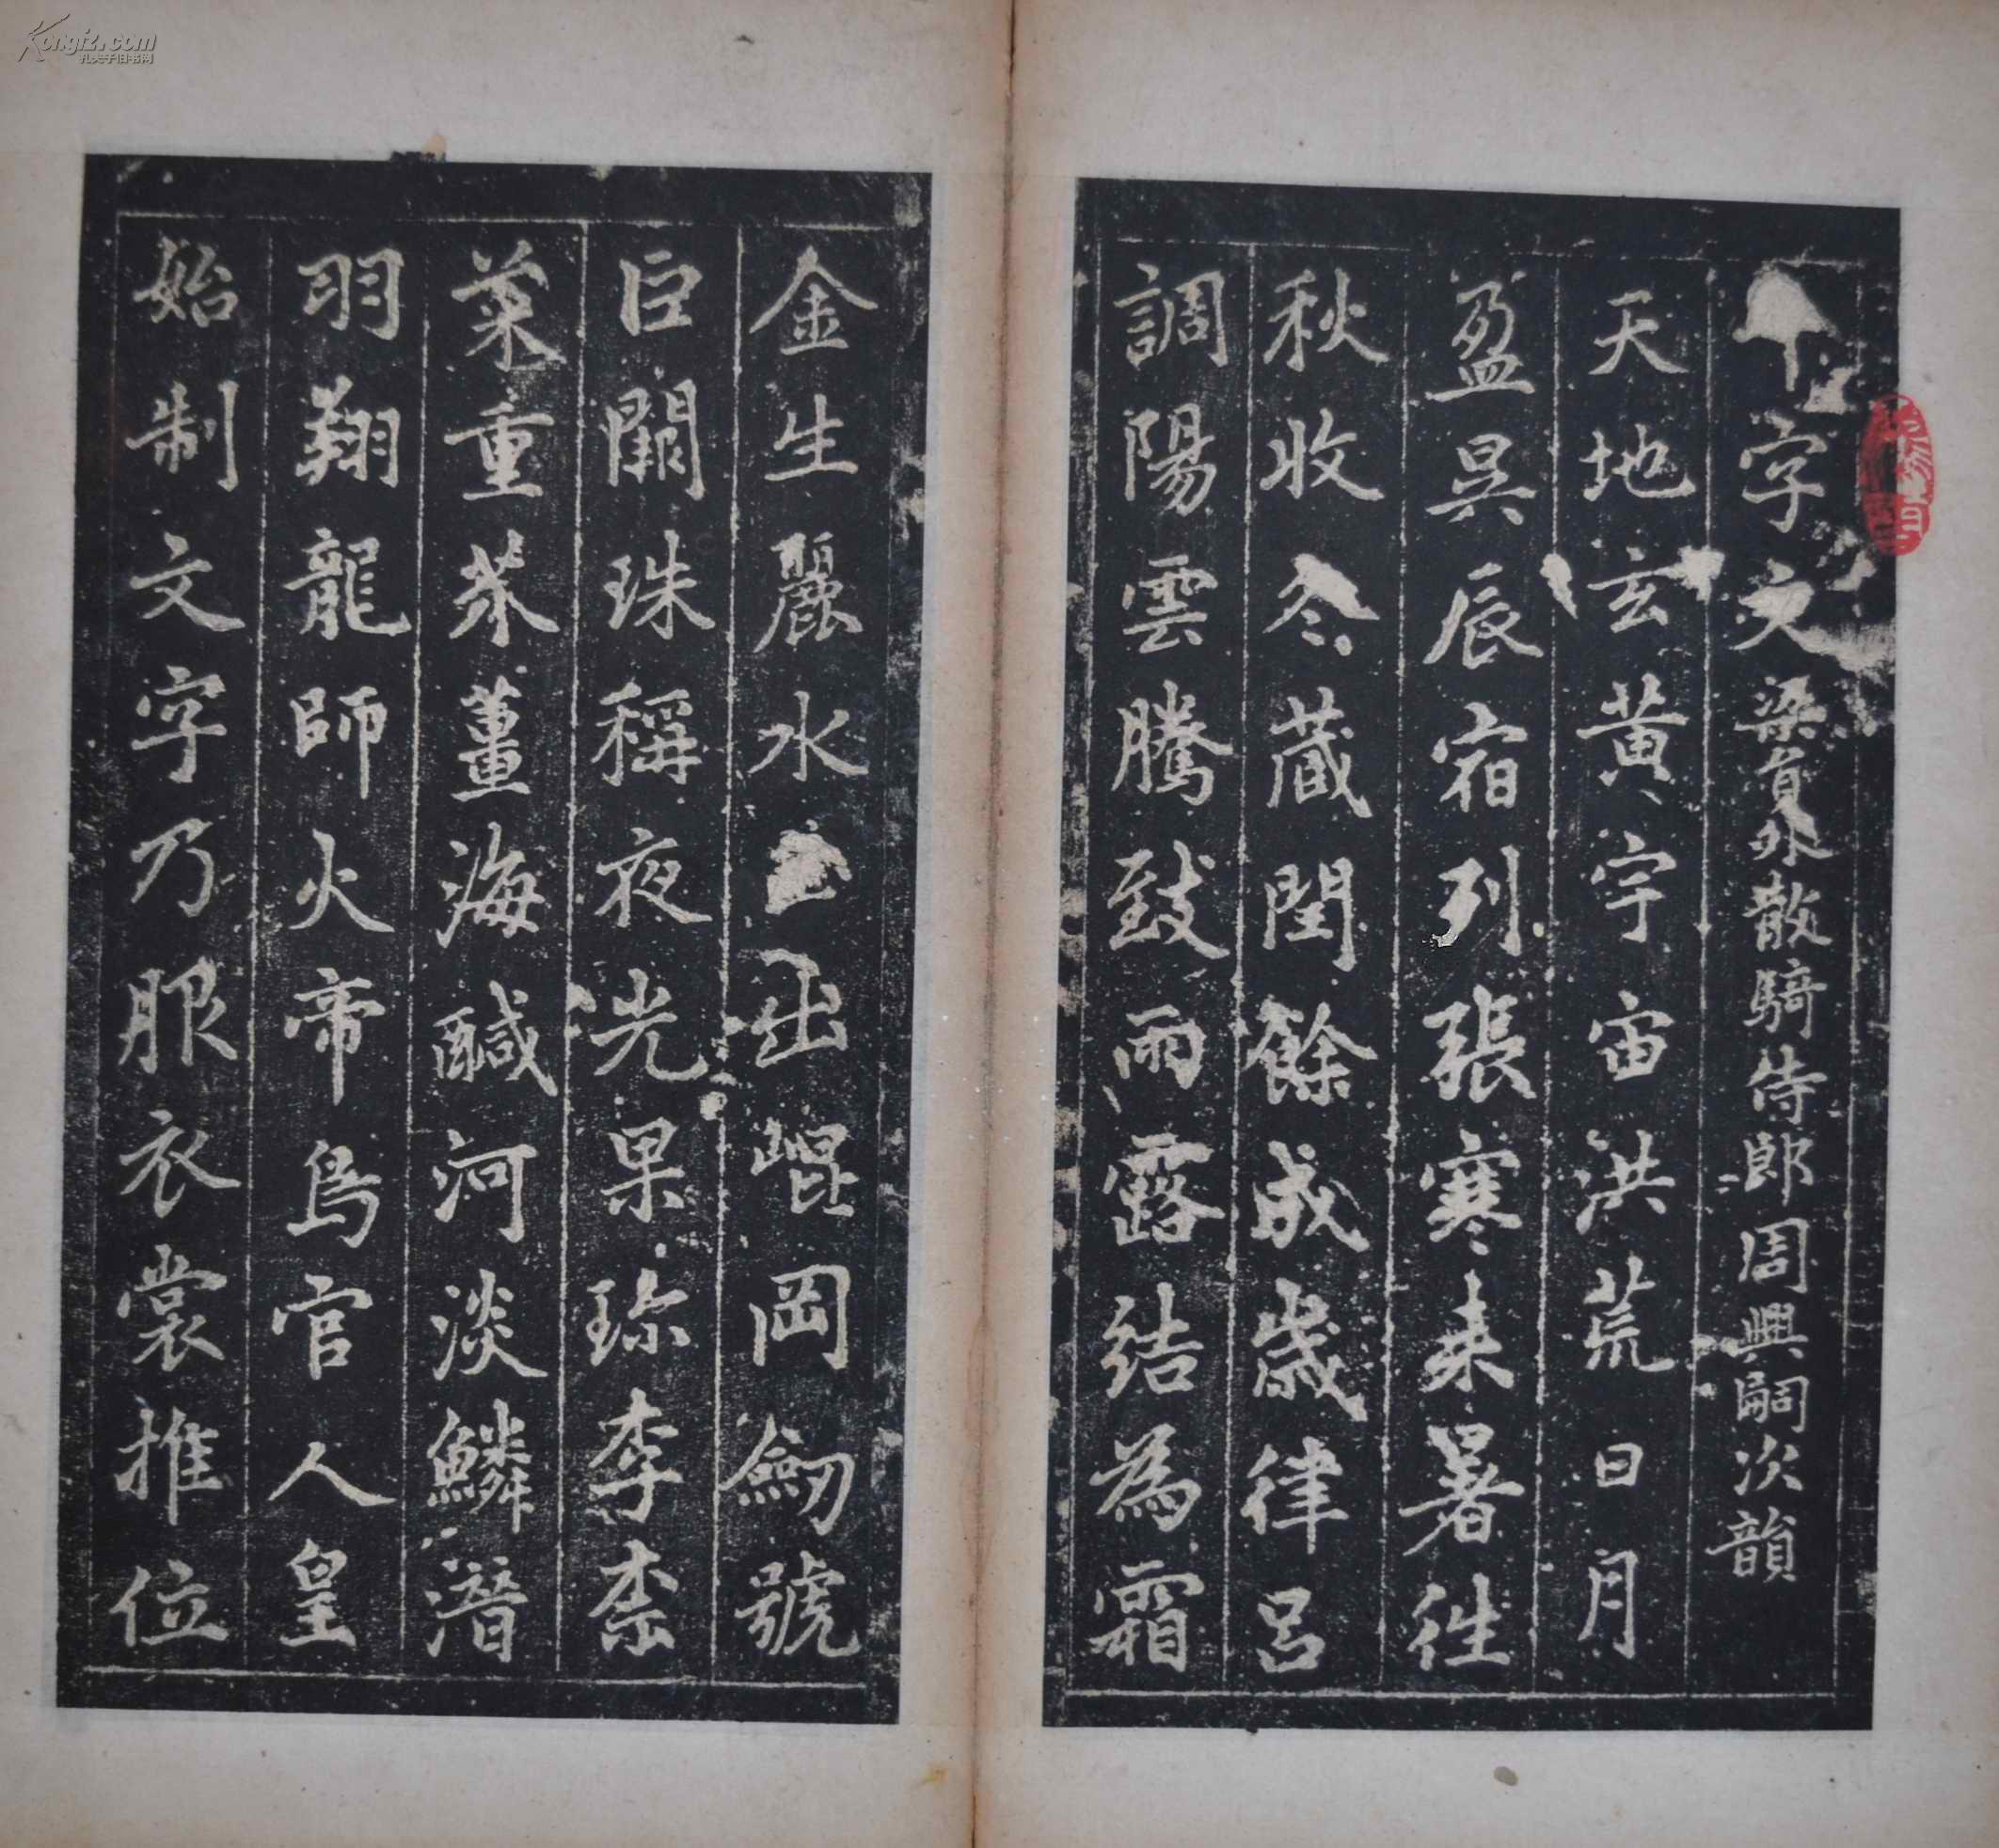 千字文梁員外散騎侍郎周興嗣次韻
天地玄黃宇宙洪荒日月
盈昃辰宿列張寒来暑往
秋收冬蔵閏餘成歲律呂
調陽雲騰致雨露結為霜
金生麗水出崐岡劒號
巨闕珠稱夜光果珎李柰
菜重芥薑海鹹河淡鱗潛
羽翔龍師火帝鳥官人皇
始制文字乃服衣裳推位
Kongfz.com
孔夫子旧书网